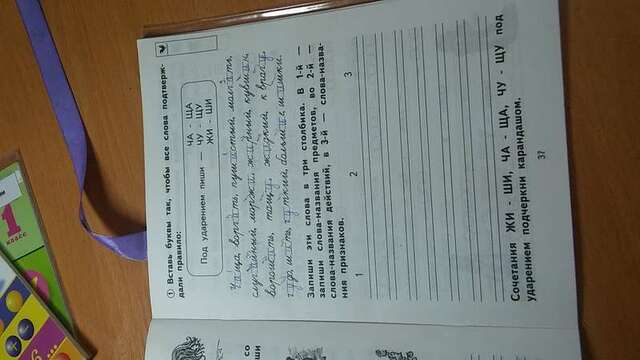 ① Вставь буквы так, чтобы все слова подтверж-
дали правило:
Под ударением пиши —
ЧА - ЩА
ЧУ - ЩУ
ЖИ - ШИ
Чаща, ворчать, пушистый, молчать,
случайный, моржи, жадный, кувшин,
тащу, жидкий, к врачу,
большие шишки.
Запиши эти слова в три столбика. В 1-й —
запиши слова-названия предметов, во 2-й —
слова-названия действий, в 3-й — слова-назва-
ния признаков.
1 2 3
Сочетания ЖИ - ШИ, ЧА - ЩА, ЧУ - ЩУ под
ударением подчеркни карандашом.
37
1
классе
со